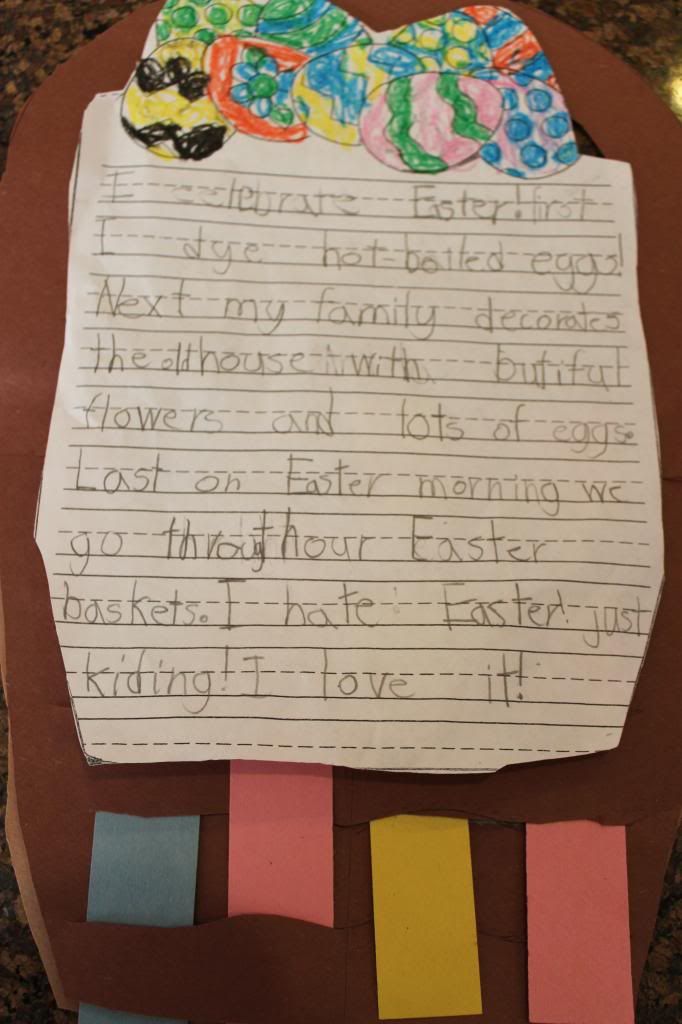 I celebrate Easter! first
I dye hot-boiled eggs!
Next my family decorates
the house with butiful
flowers and lots of eggs.
Last on Easter morning we
go through our Easter
baskets. I hate Easter! just
kiding! I love it!